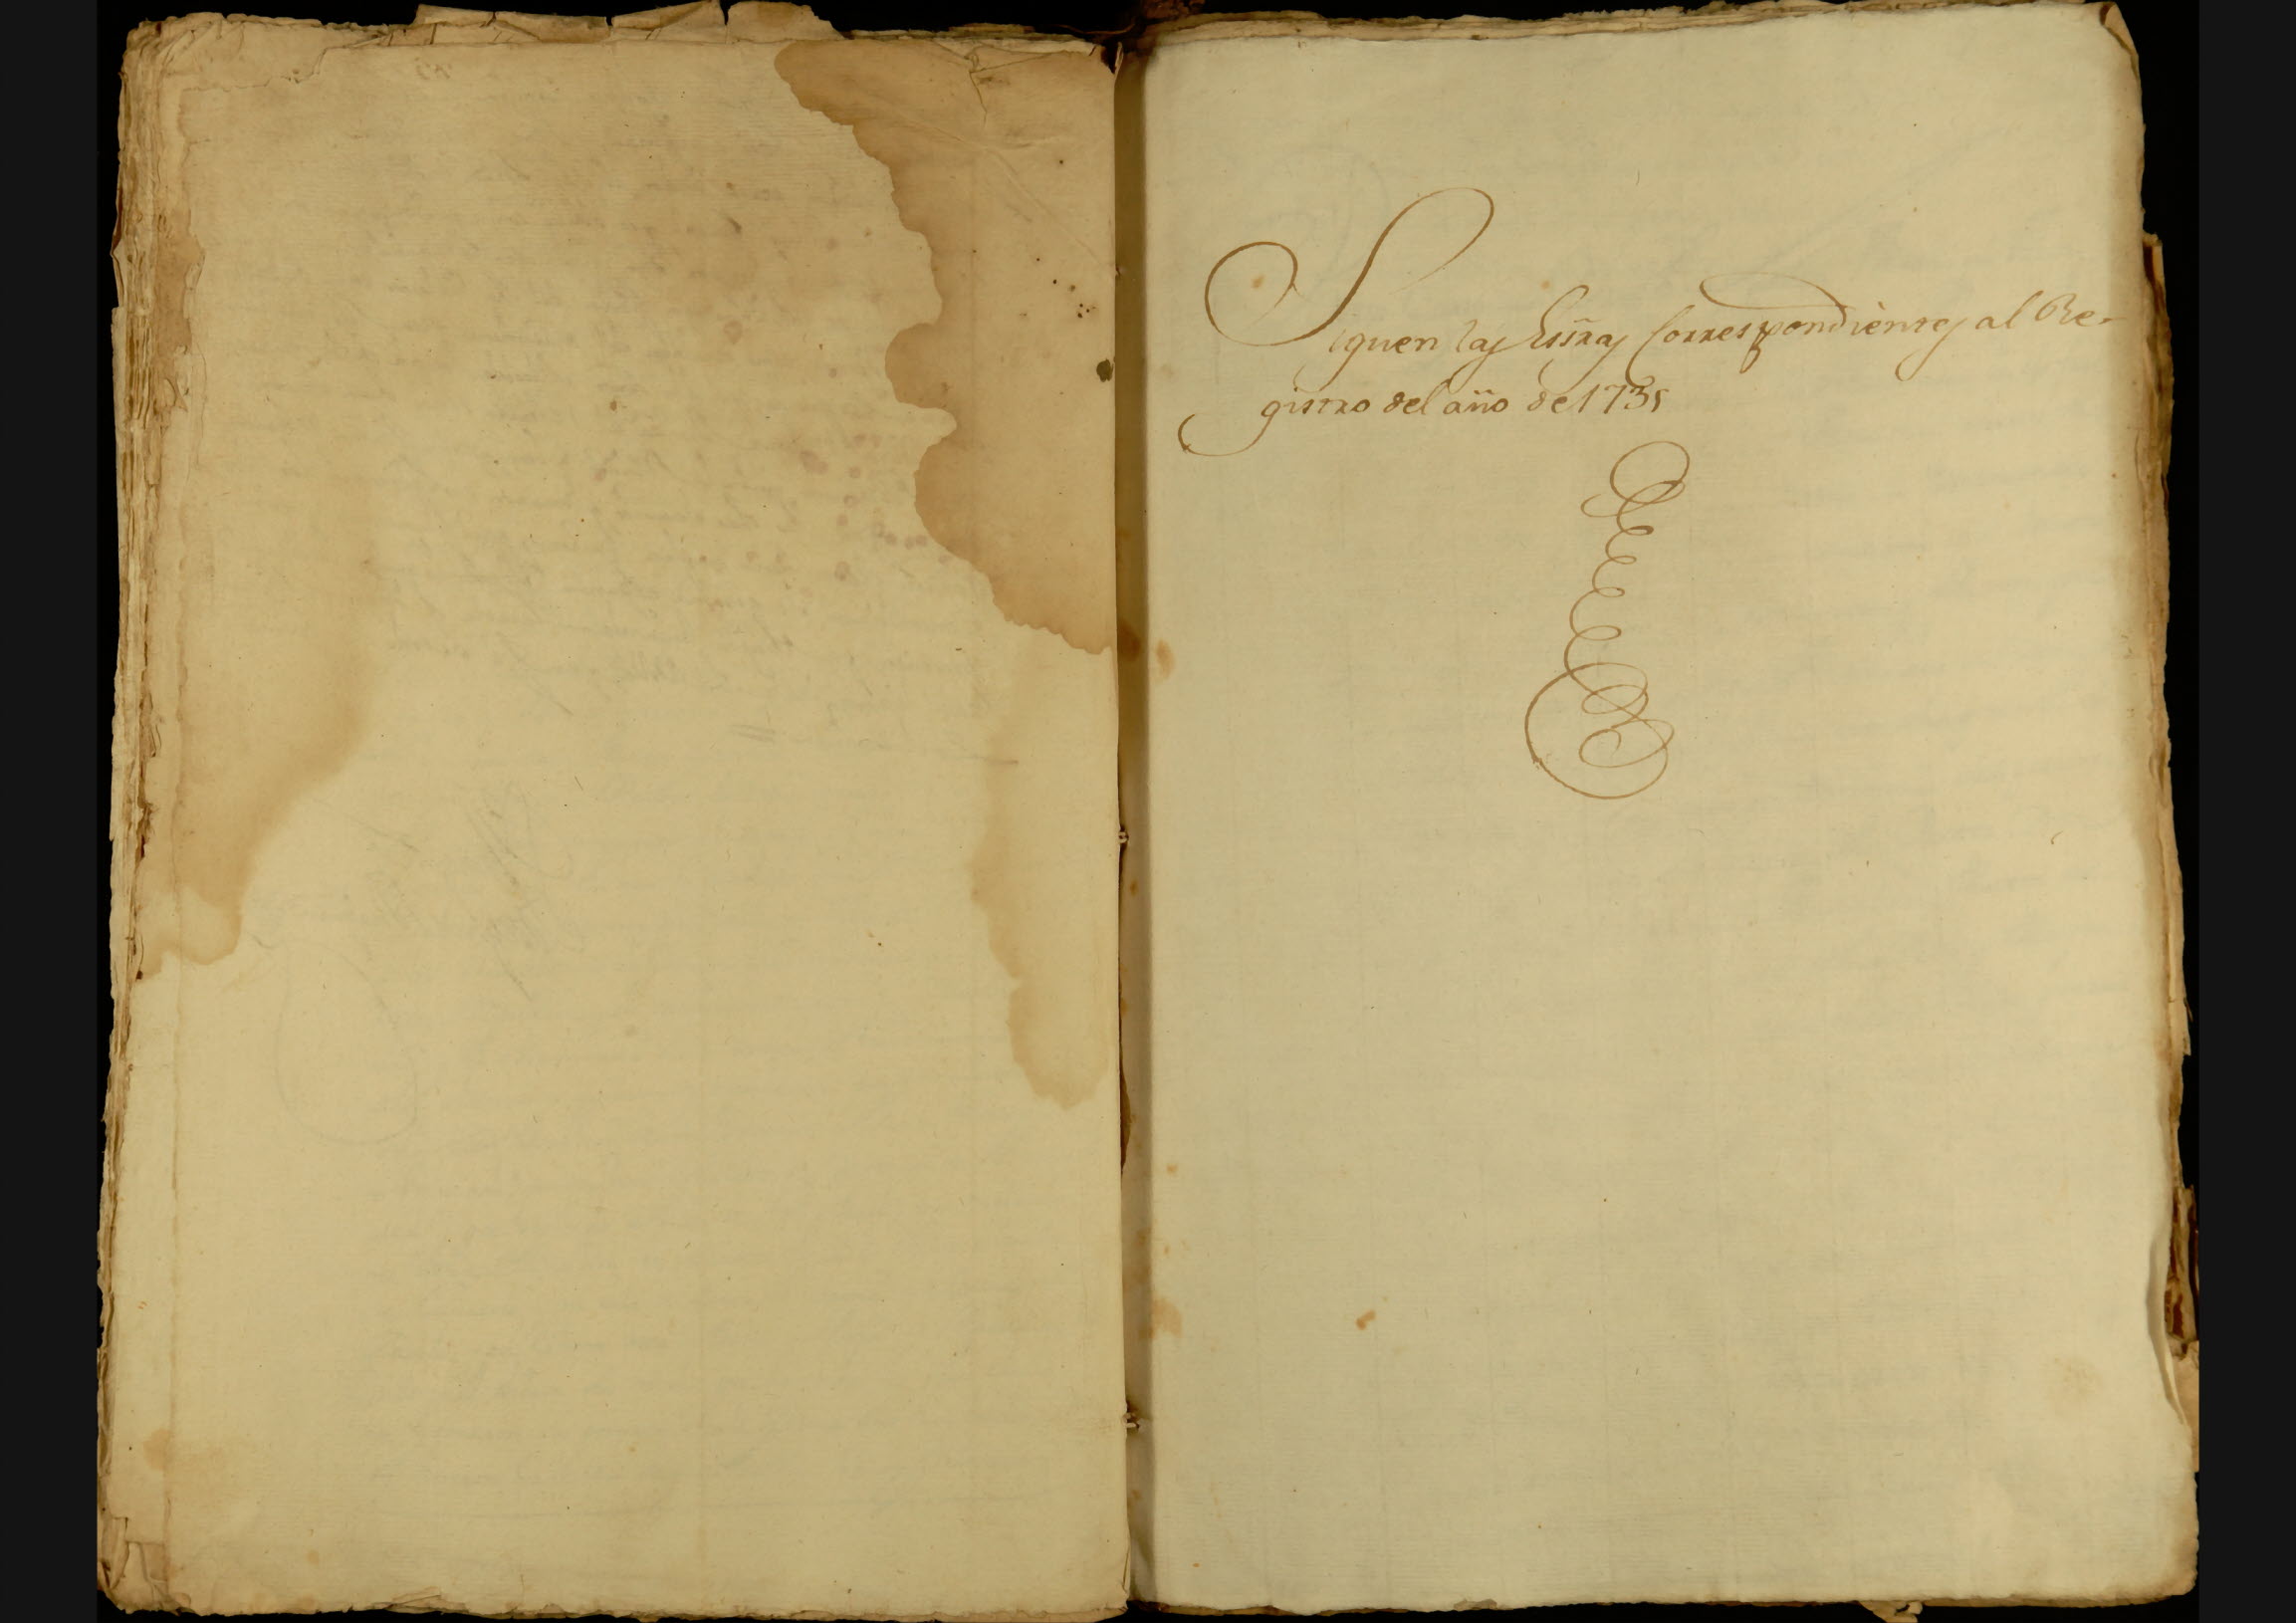 Siguen las Essras Correspondientes al Re-
gistro del año de 1735